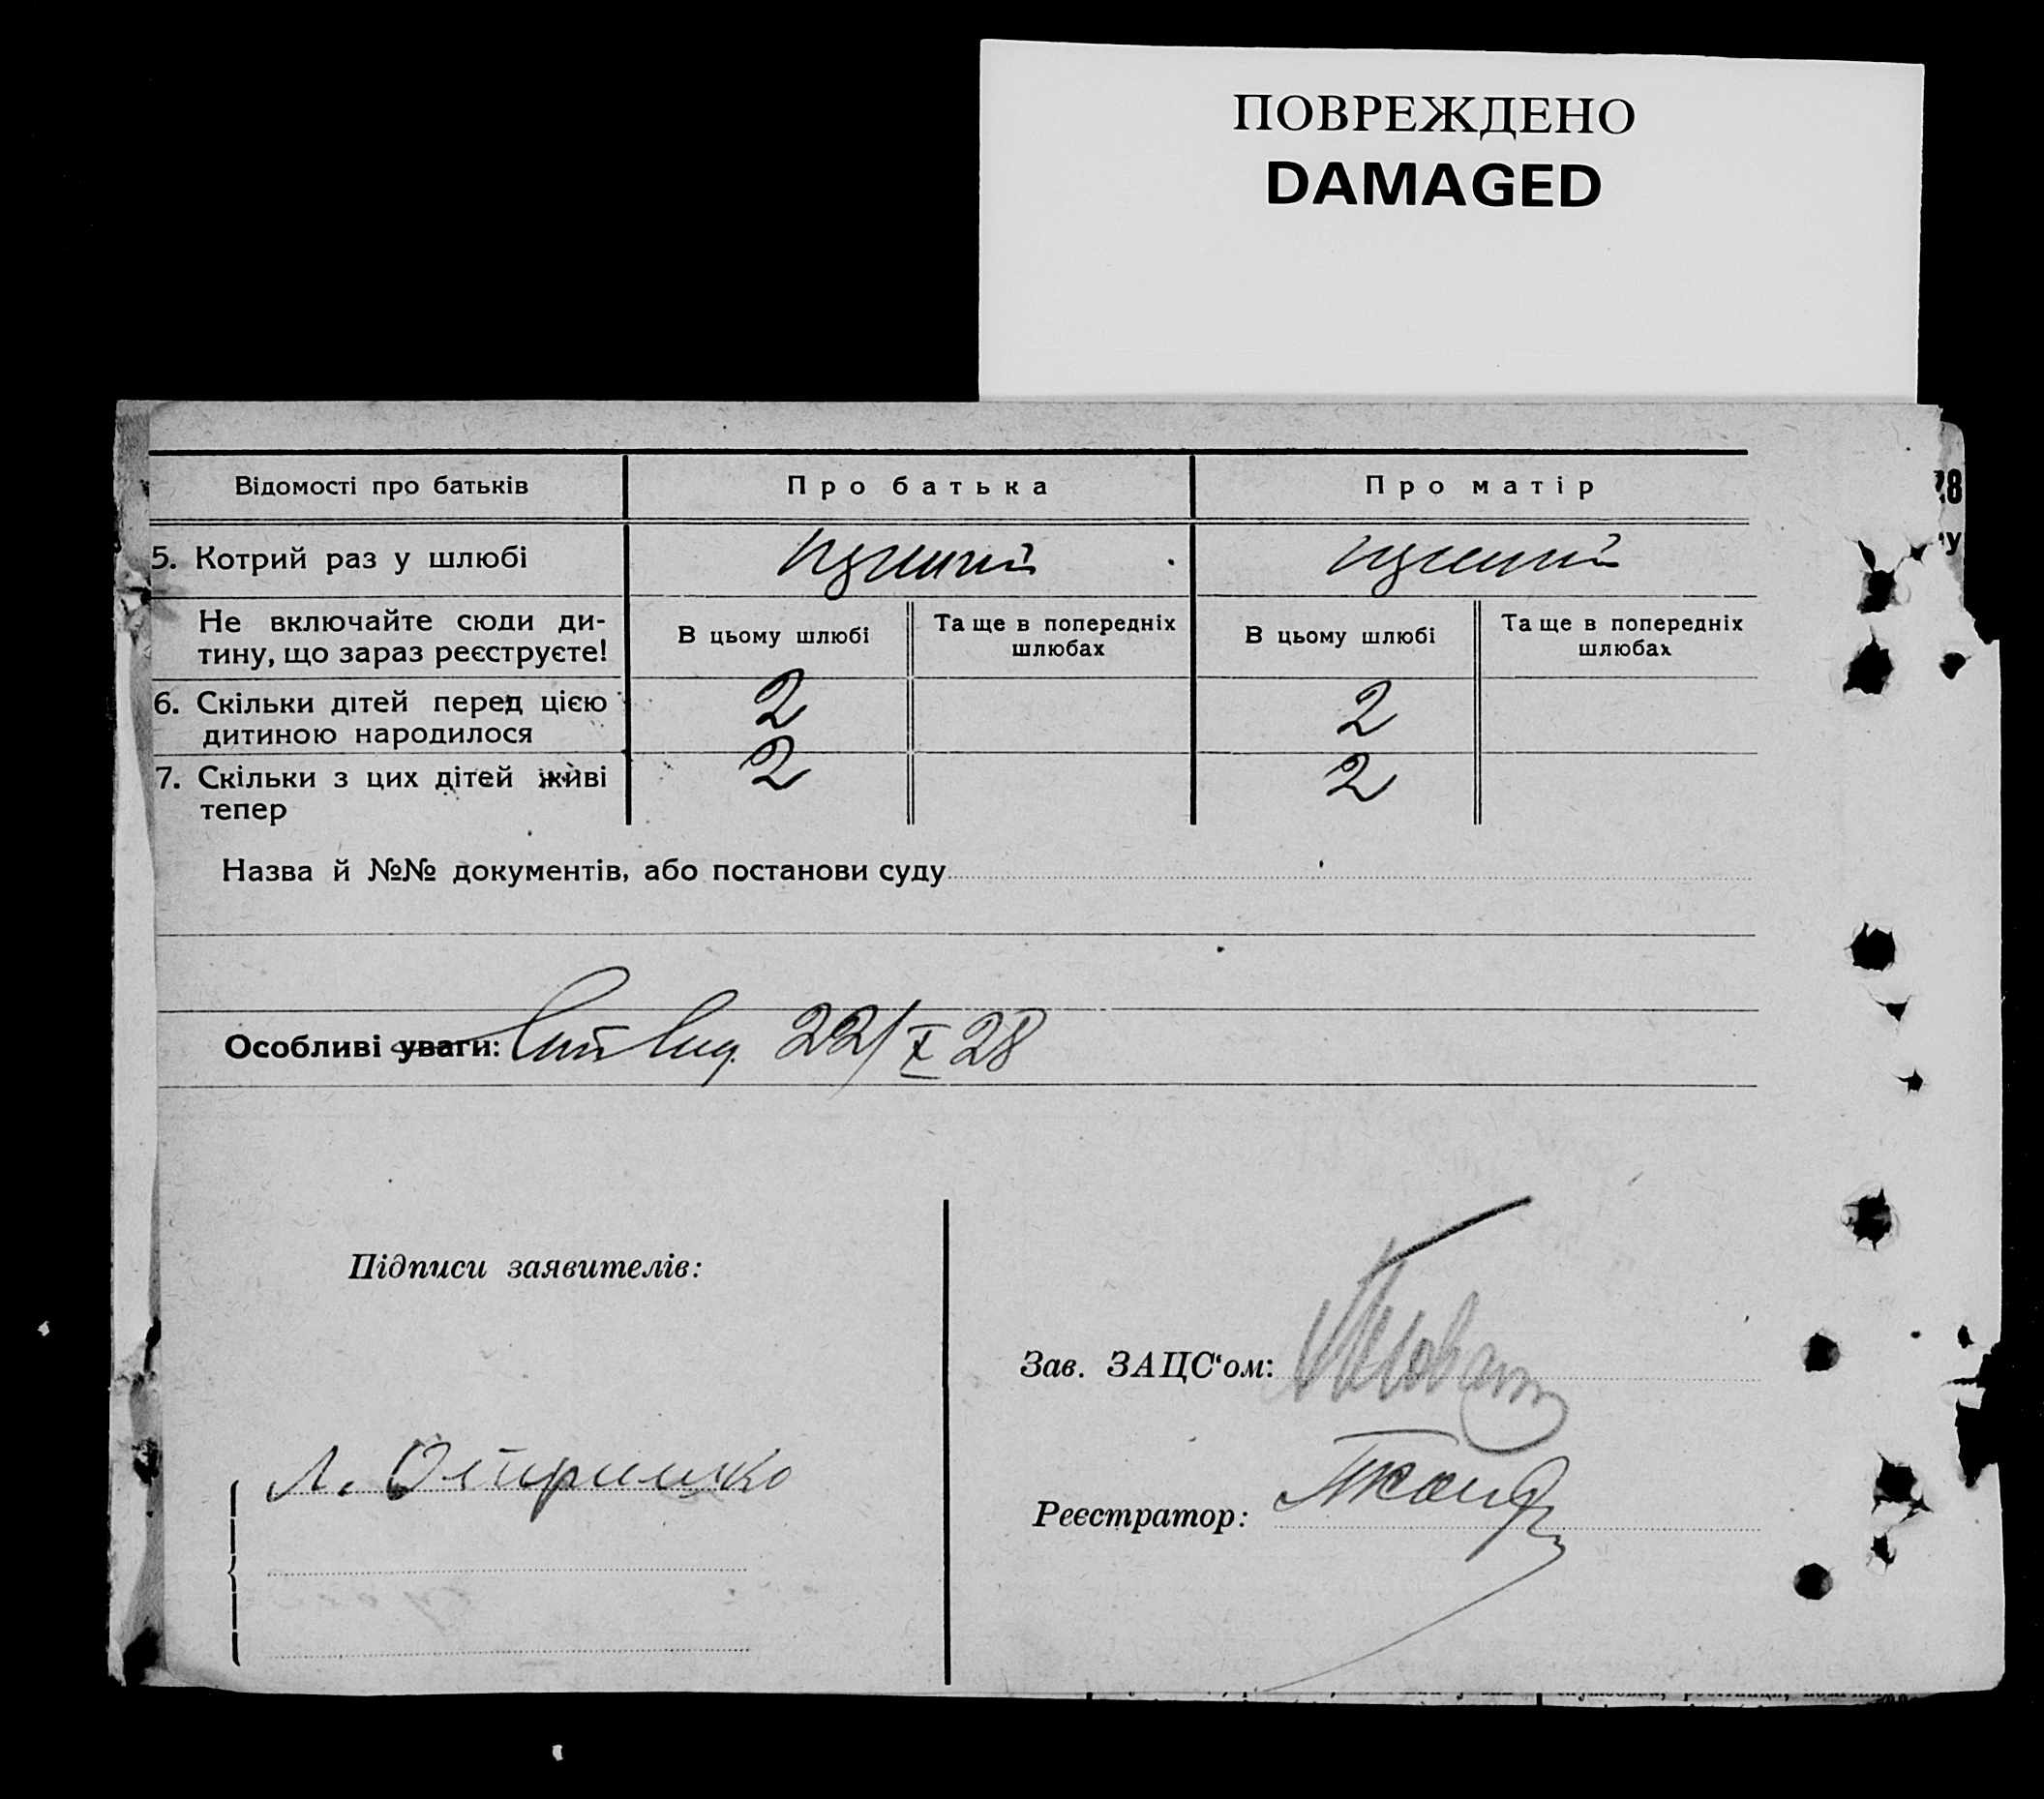 ПОВРЕЖДЕНО
DAMAGED
Відомості про батьків
Про батька
Про матір
5. Котрий раз у шлюбі
Не включайте сюди ди-
тину, що зараз реєструєте!
В цьому шлюбі
Та ще в попередніх
шлюбах
В цьому шлюбі
Та ще в попередніх
шлюбах
6. Скільки дітей перед цією
дитиною народилося
2
2
7. Скільки з цих дітей живі
тепер
2
2
Назва й №№ документів, або постанови суду
Особливі уваги: 22/X 28
Підписи заявителів:
Зав. ЗАЦС‘ом:
Л.
Реєстратор:
28
у